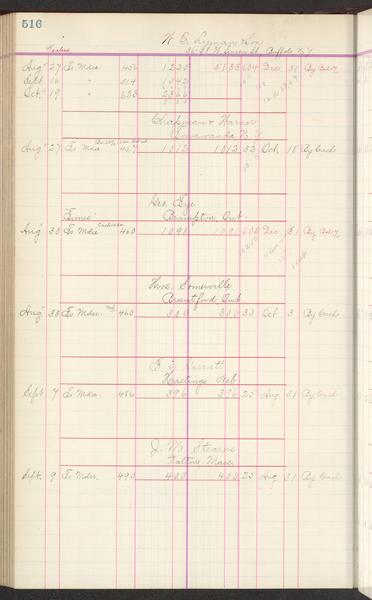 516
Dealers
W. E. Lyman & Son
Buffalo N.Y.
Aug 27 To Mdse 456 1225 5133 604 Dec 31 By Bal
Sept 16 " 514 1542
Oct 19 " 623 2366
Chapman & Warner
N.Y.
Aug 27 To Mdse 457 1012 1012 32 Oct 18 By Cash
Geo. Eye
"Ennis" Brampton, Ont.
Aug 30 To Mdse. 460 1091 1091 605 Dec 31 By Bal
Thos. Somerville
Brantford Ont
Aug 30 To Mdse. 460 300 300 30 Oct 3 By Cash
Hastings Neb.
Sept. 7 To Mdse. 486 396 396 25 Aug 31 By Cash
J. M. Stearns
Mass.
Sept. 9 To Mdse. 490 400 400 25 Aug 31 By Cash